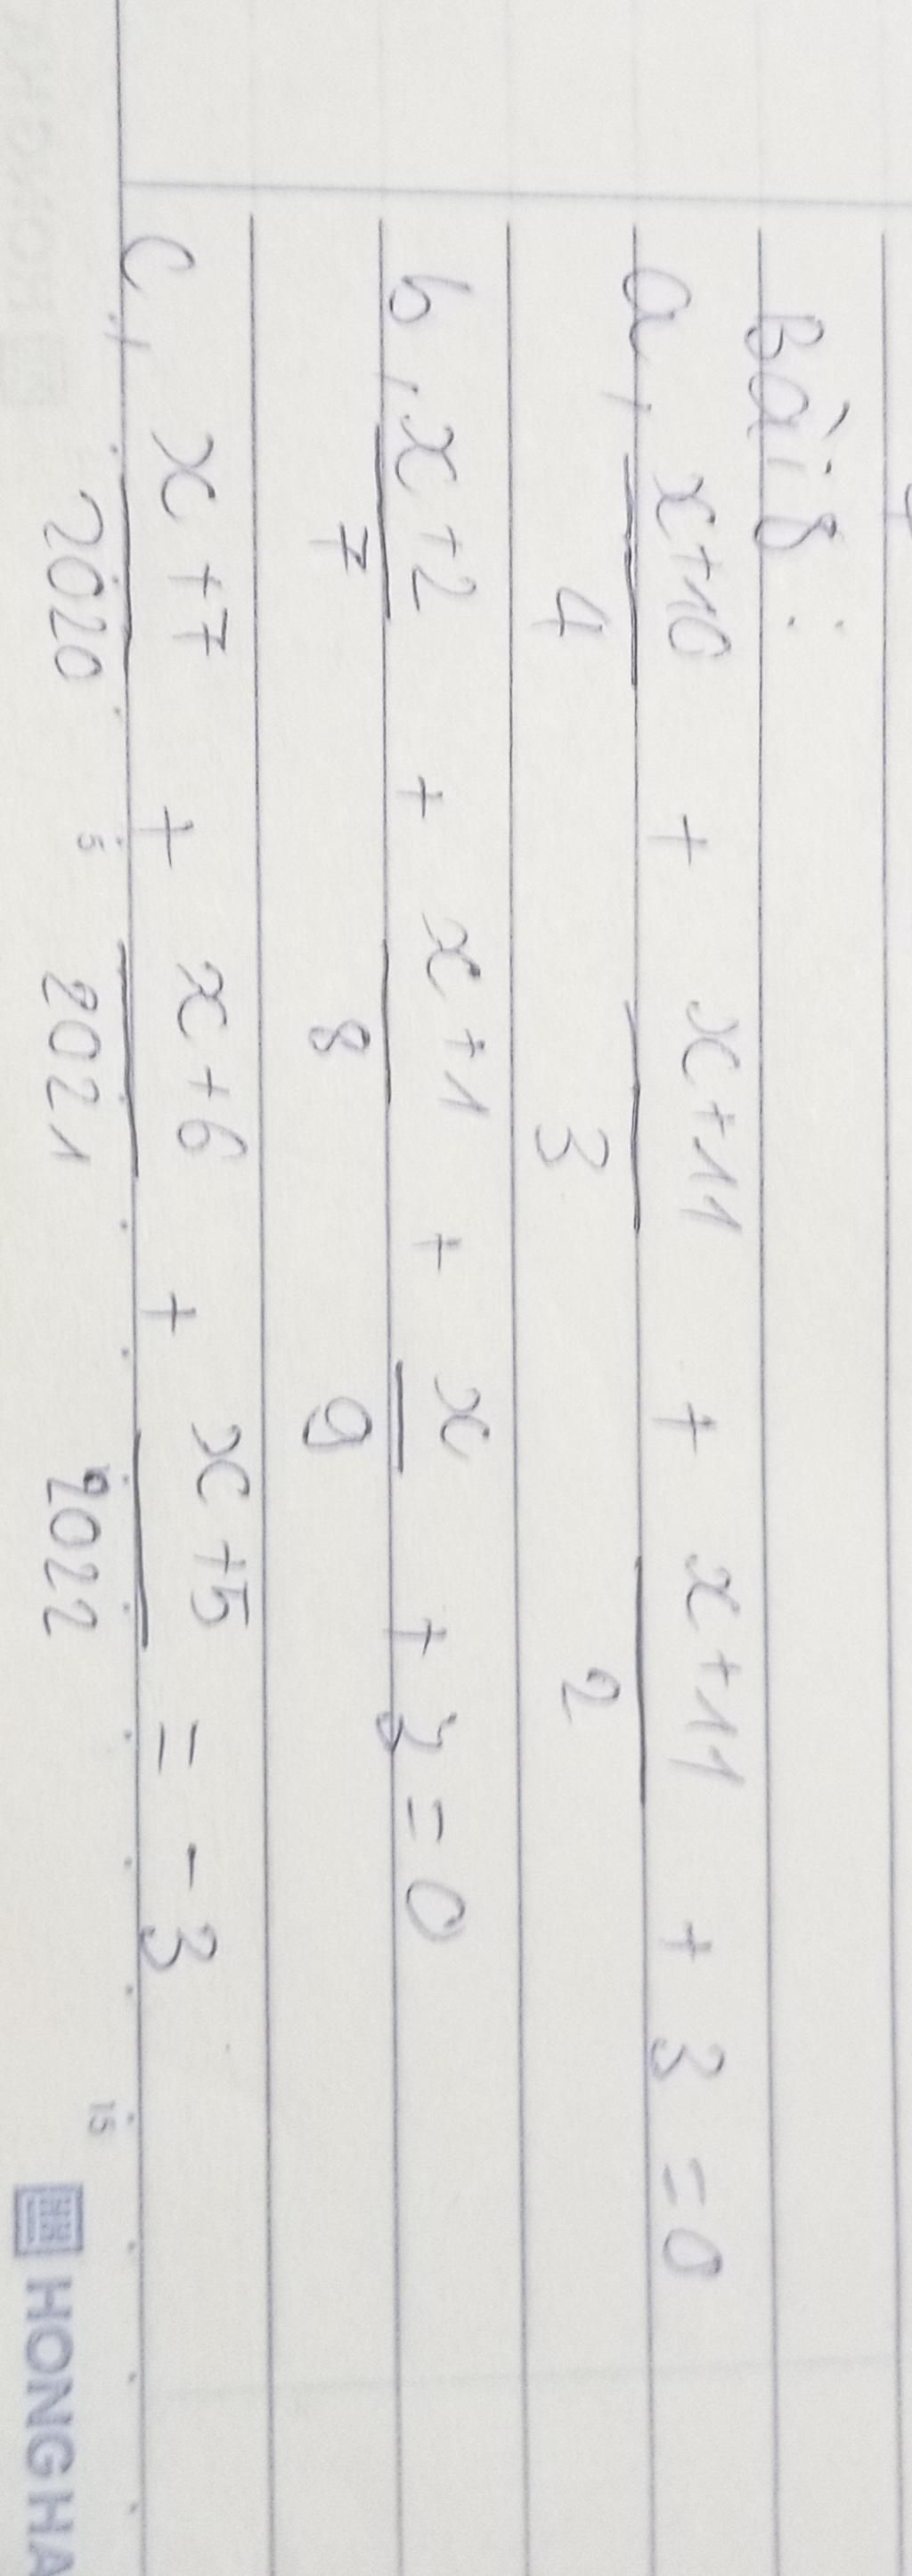 Bài 8 :
a, x+10 / 4 + x+11 / 3 + x+11 / 2 + 3 = 0
b, x+2 / 7 + x+1 / 8 + x / 9 + 3 = 0
c, x+7 / 2020 + x+6 / 2021 + x+5 / 2022 = -3
5 15
HONG HA